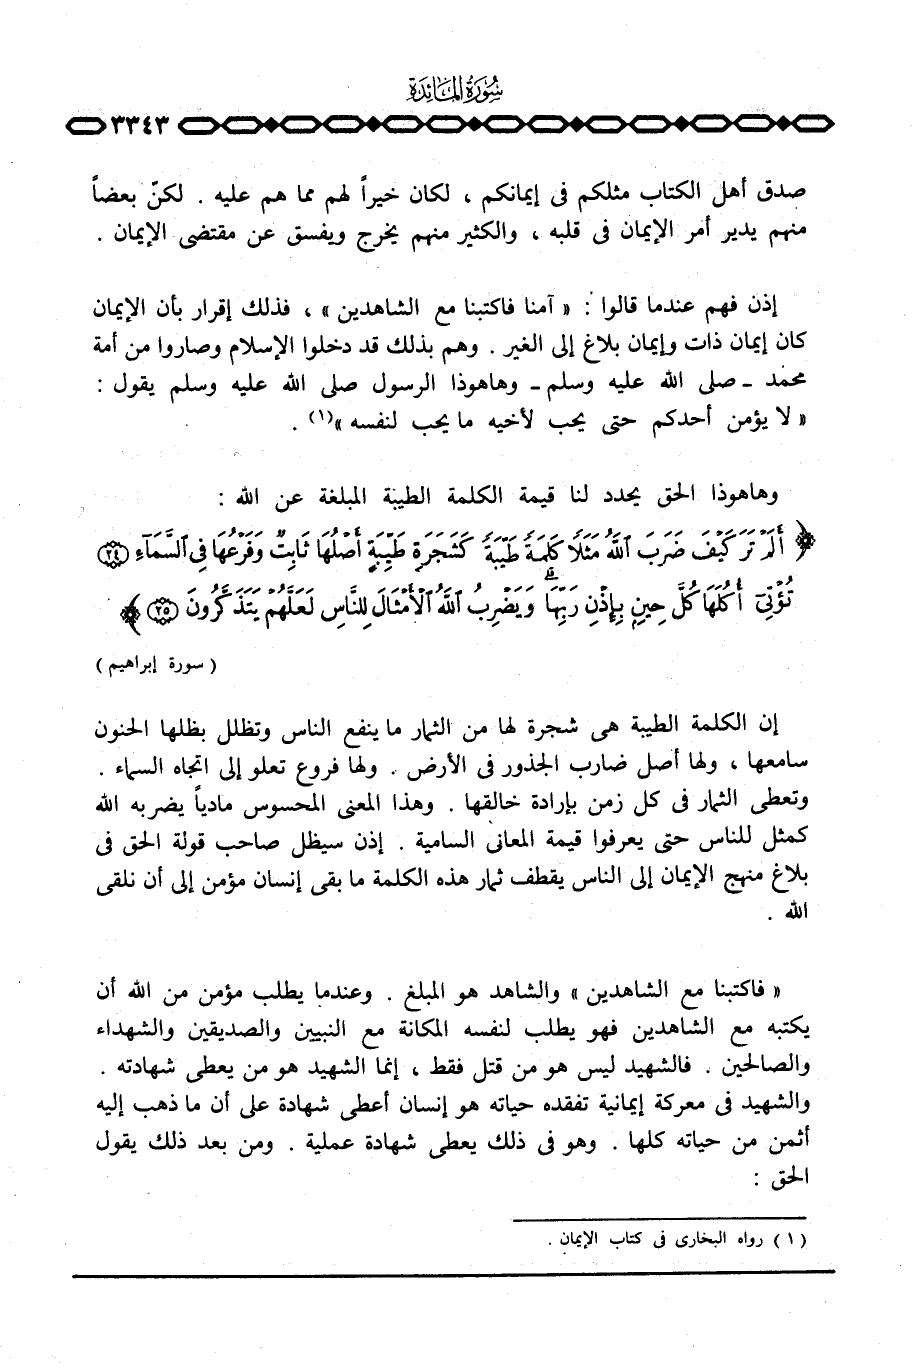 سُورَةُ المَائِدَة
٣٣٤٣
صدق أهل الكتاب مثلكم فى إيمانكم ، لكان خيراً لهم مما هم عليه . لكنّ بعضاً
منهم يدير أمر الإيمان فى قلبه ، والكثير منهم يخرج ويفسق عن مقتضى الإيمان .
إذن فهم عندما قالوا : « آمنا فاكتبنا مع الشاهدين » ، فذلك إقرار بأن الإيمان
كان إيمان ذات وإيمان بلاغ إلى الغير . وهم بذلك قد دخلوا الإسلام وصاروا من أمة
محمد ـ صلى الله عليه وسلم ـ وهاهوذا الرسول صلى الله عليه وسلم يقول :
« لا يؤمن أحدكم حتى يحب لأخيه ما يحب لنفسه »(١) .
وهاهوذا الحق يحدد لنا قيمة الكلمة الطيبة المبلغة عن الله :
﴿ أَلَمْ تَرَ كَيْفَ ضَرَبَ ٱللَّهُ مَثَلًا كَلِمَةً طَيِّبَةً كَشَجَرَةٍ طَيِّبَةٍ أَصْلُهَا ثَابِتٌ وَفَرْعُهَا فِى ٱلسَّمَآءِ ٢٤
تُؤْتِىٓ أُكُلَهَا كُلَّ حِينٍۭ بِإِذْنِ رَبِّهَا ۗ وَيَضْرِبُ ٱللَّهُ ٱلْأَمْثَالَ لِلنَّاسِ لَعَلَّهُمْ يَتَذَكَّرُونَ ٢٥ ﴾
( سورة إبراهيم )
إن الكلمة الطيبة هى شجرة لها من الثمار ما ينفع الناس وتظلل بظلها الحنون
سامعها ، ولها أصل ضارب الجذور فى الأرض . ولها فروع تعلو إلى اتجاه السماء .
وتعطى الثمار فى كل زمن بإرادة خالقها . وهذا المعنى المحسوس مادياً يضربه الله
كمثل للناس حتى يعرفوا قيمة المعانى السامية . إذن سيظل صاحب قولة الحق فى
بلاغ منهج الإيمان إلى الناس يقطف ثمار هذه الكلمة ما بقى إنسان مؤمن إلى أن نلقى
الله .
« فاكتبنا مع الشاهدين » والشاهد هو المبلغ . وعندما يطلب مؤمن من الله أن
يكتبه مع الشاهدين فهو يطلب لنفسه المكانة مع النبيين والصديقين والشهداء
والصالحين . فالشهيد ليس هو من قتل فقط ، إنما الشهيد هو من يعطى شهادته .
والشهيد فى معركة إيمانية تفقده حياته هو إنسان أعطى شهادة على أن ما ذهب إليه
أثمن من حياته كلها . وهو فى ذلك يعطى شهادة عملية . ومن بعد ذلك يقول
الحق :
( ١ ) رواه البخارى فى كتاب الإيمان .